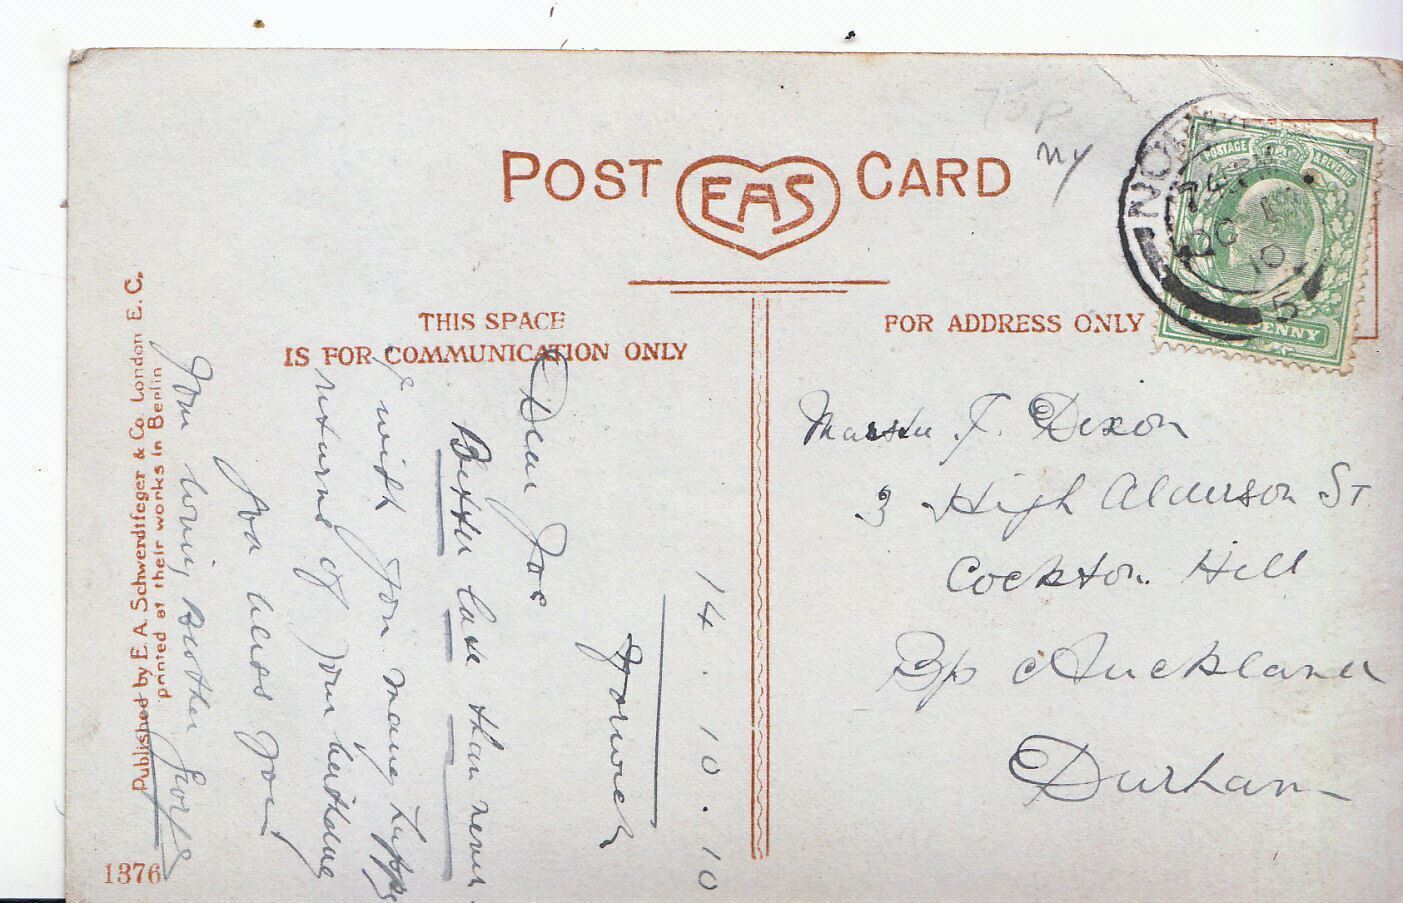 POST EAS CARD
NY
POSTAGE & REVENUE
OC 10
5
HALFPENNY
THIS SPACE
IS FOR COMMUNICATION ONLY
FOR ADDRESS ONLY
14.10.10
Norwich
Dear Joe
Better late than never
I wish you many happy
returns of your birthday
God bless you
Your loving Brother George
Master J. Dixon
3 High Alderson St
Cockton Hill
Bp Auckland
Durham
Published by E. A. Schwerdtfeger & Co. London E. C.
printed at their works in Berlin
1376